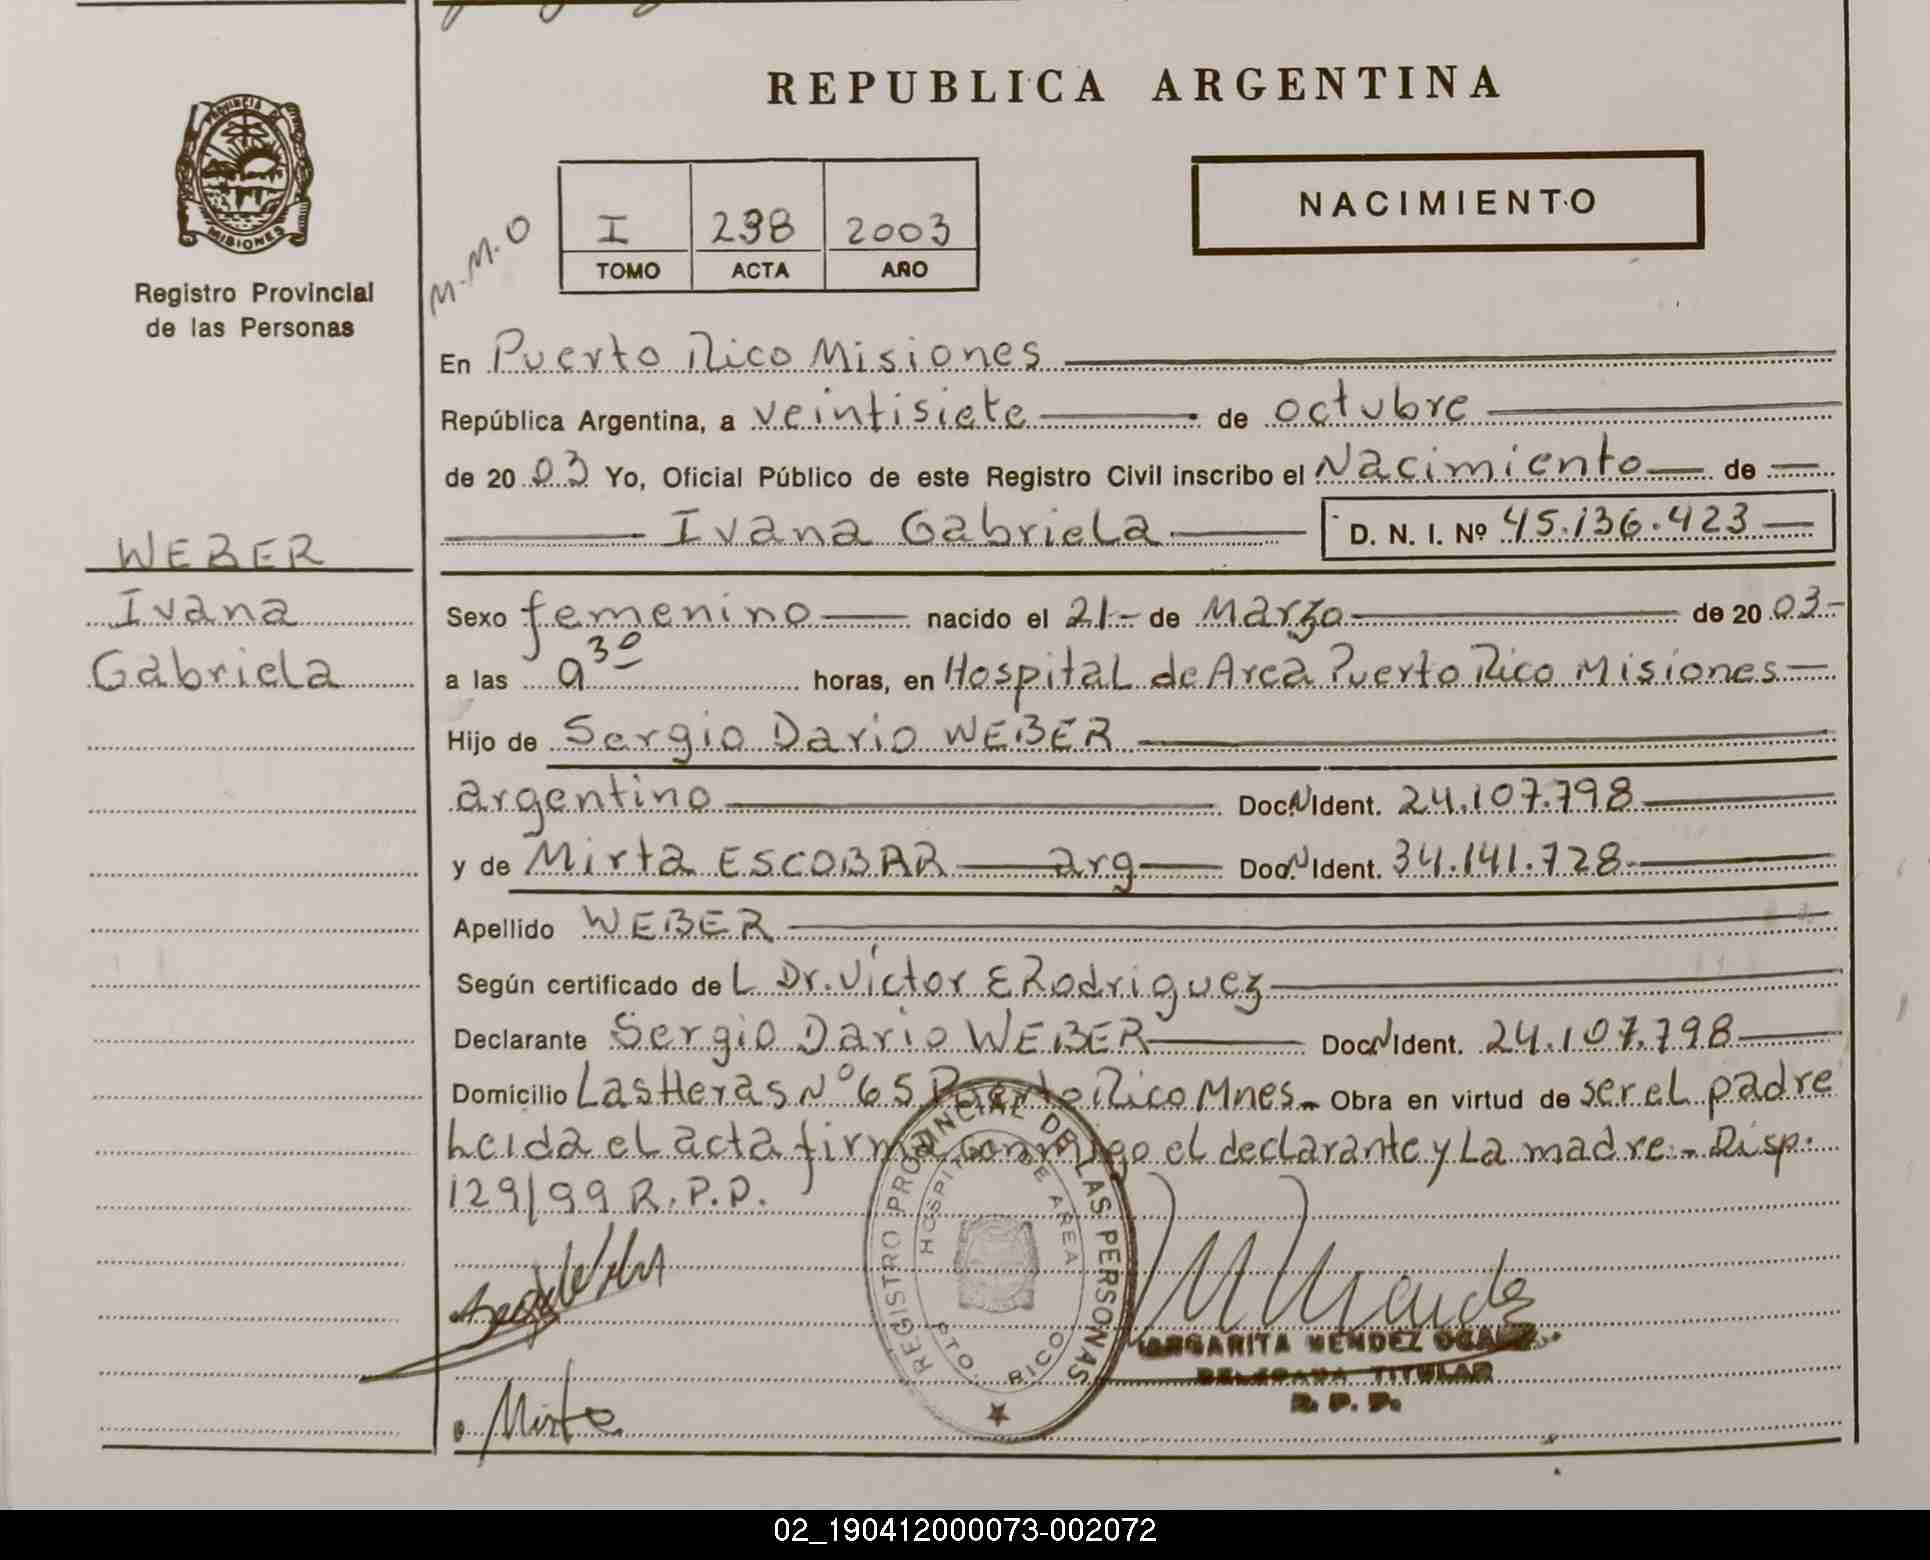 REPUBLICA ARGENTINA
PROVINCIA DE
MISIONES
Registro Provincial
de las Personas
M.M.O
I 298 2003
TOMO ACTA AÑO
NACIMIENTO
En Puerto Rico Misiones
República Argentina, a veintisiete de octubre
de 20 03 Yo, Oficial Público de este Registro Civil inscribo el Nacimiento de
Ivana Gabriela D. N. I. Nº 45.136.423
WEBER
Ivana
Gabriela
Sexo femenino nacido el 21 de Marzo de 20 03
a las 9 30 horas, en Hospital de Area Puerto Rico Misiones
Hijo de Sergio Dario WEBER
argentino Doc.N Ident. 24.107.798
y de Mirta ESCOBAR arg Doc.N Ident. 34.141.728
Apellido WEBER
Según certificado de L Dr. Víctor E Rodriguez
Declarante Sergio Dario WEBER Doc.N Ident. 24.107.798
Domicilio Las Heras Nº 65 Puerto Rico Mnes. Obra en virtud de ser el padre
Leida el acta firma conmigo el declarante y La madre.- Disp:
129/99 R.P.P.
REGISTRO PROVINCIAL DE LAS PERSONAS
HOSPITAL DE AREA
PTO. RICO
MARGARITA MENDEZ
DELEGADA TITULAR
R. P. P.
Mirta
02_190412000073-002072